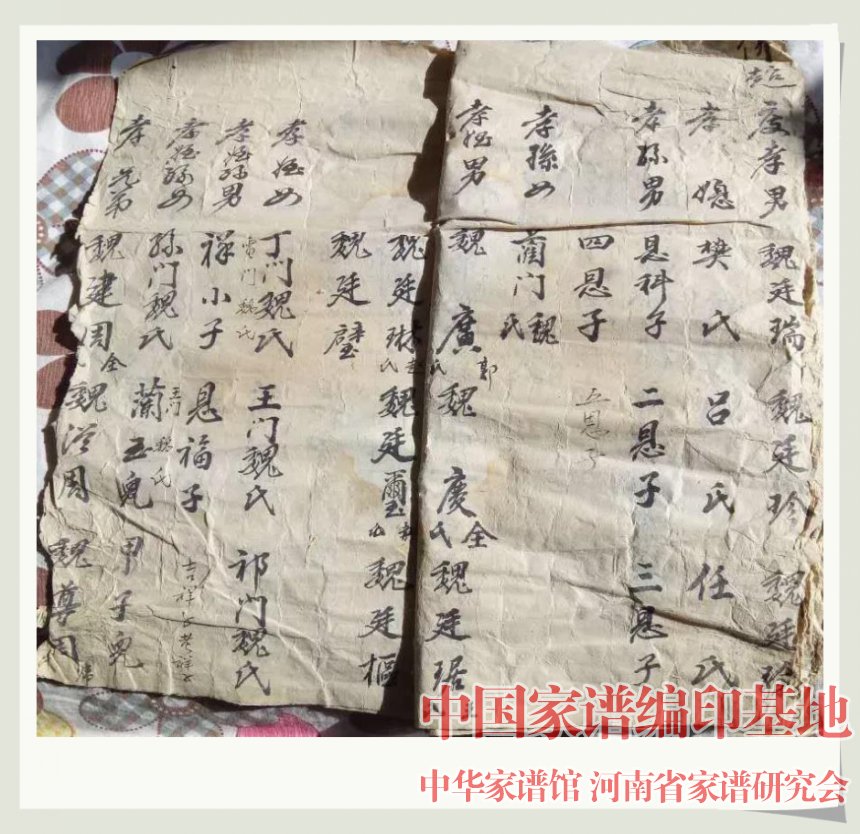 孝男 魏廷瑞 魏廷珍 魏廷
孝媳 樊氏 吕氏 任氏
孝孙男 息科子 二息子 三息子
四息子 五息子
孝孫女 蘭门魏氏
孝侄男 魏廣 郭氏 魏慶 全氏 魏廷琚
魏廷琳 魏廷璽 魏廷樞
魏廷璧
孝侄女 丁门魏氏 王门魏氏 祁门魏氏
雷门魏氏
孝侄孙男 祥小子 息福子 吉祥子
王门魏氏
孝侄孙女 孙门魏氏 蘭玉兒 甲子兒
孝兄弟 魏建周 全氏 魏從周 魏尊周
中国家谱编印基地
中华家谱馆 河南省家谱研究会